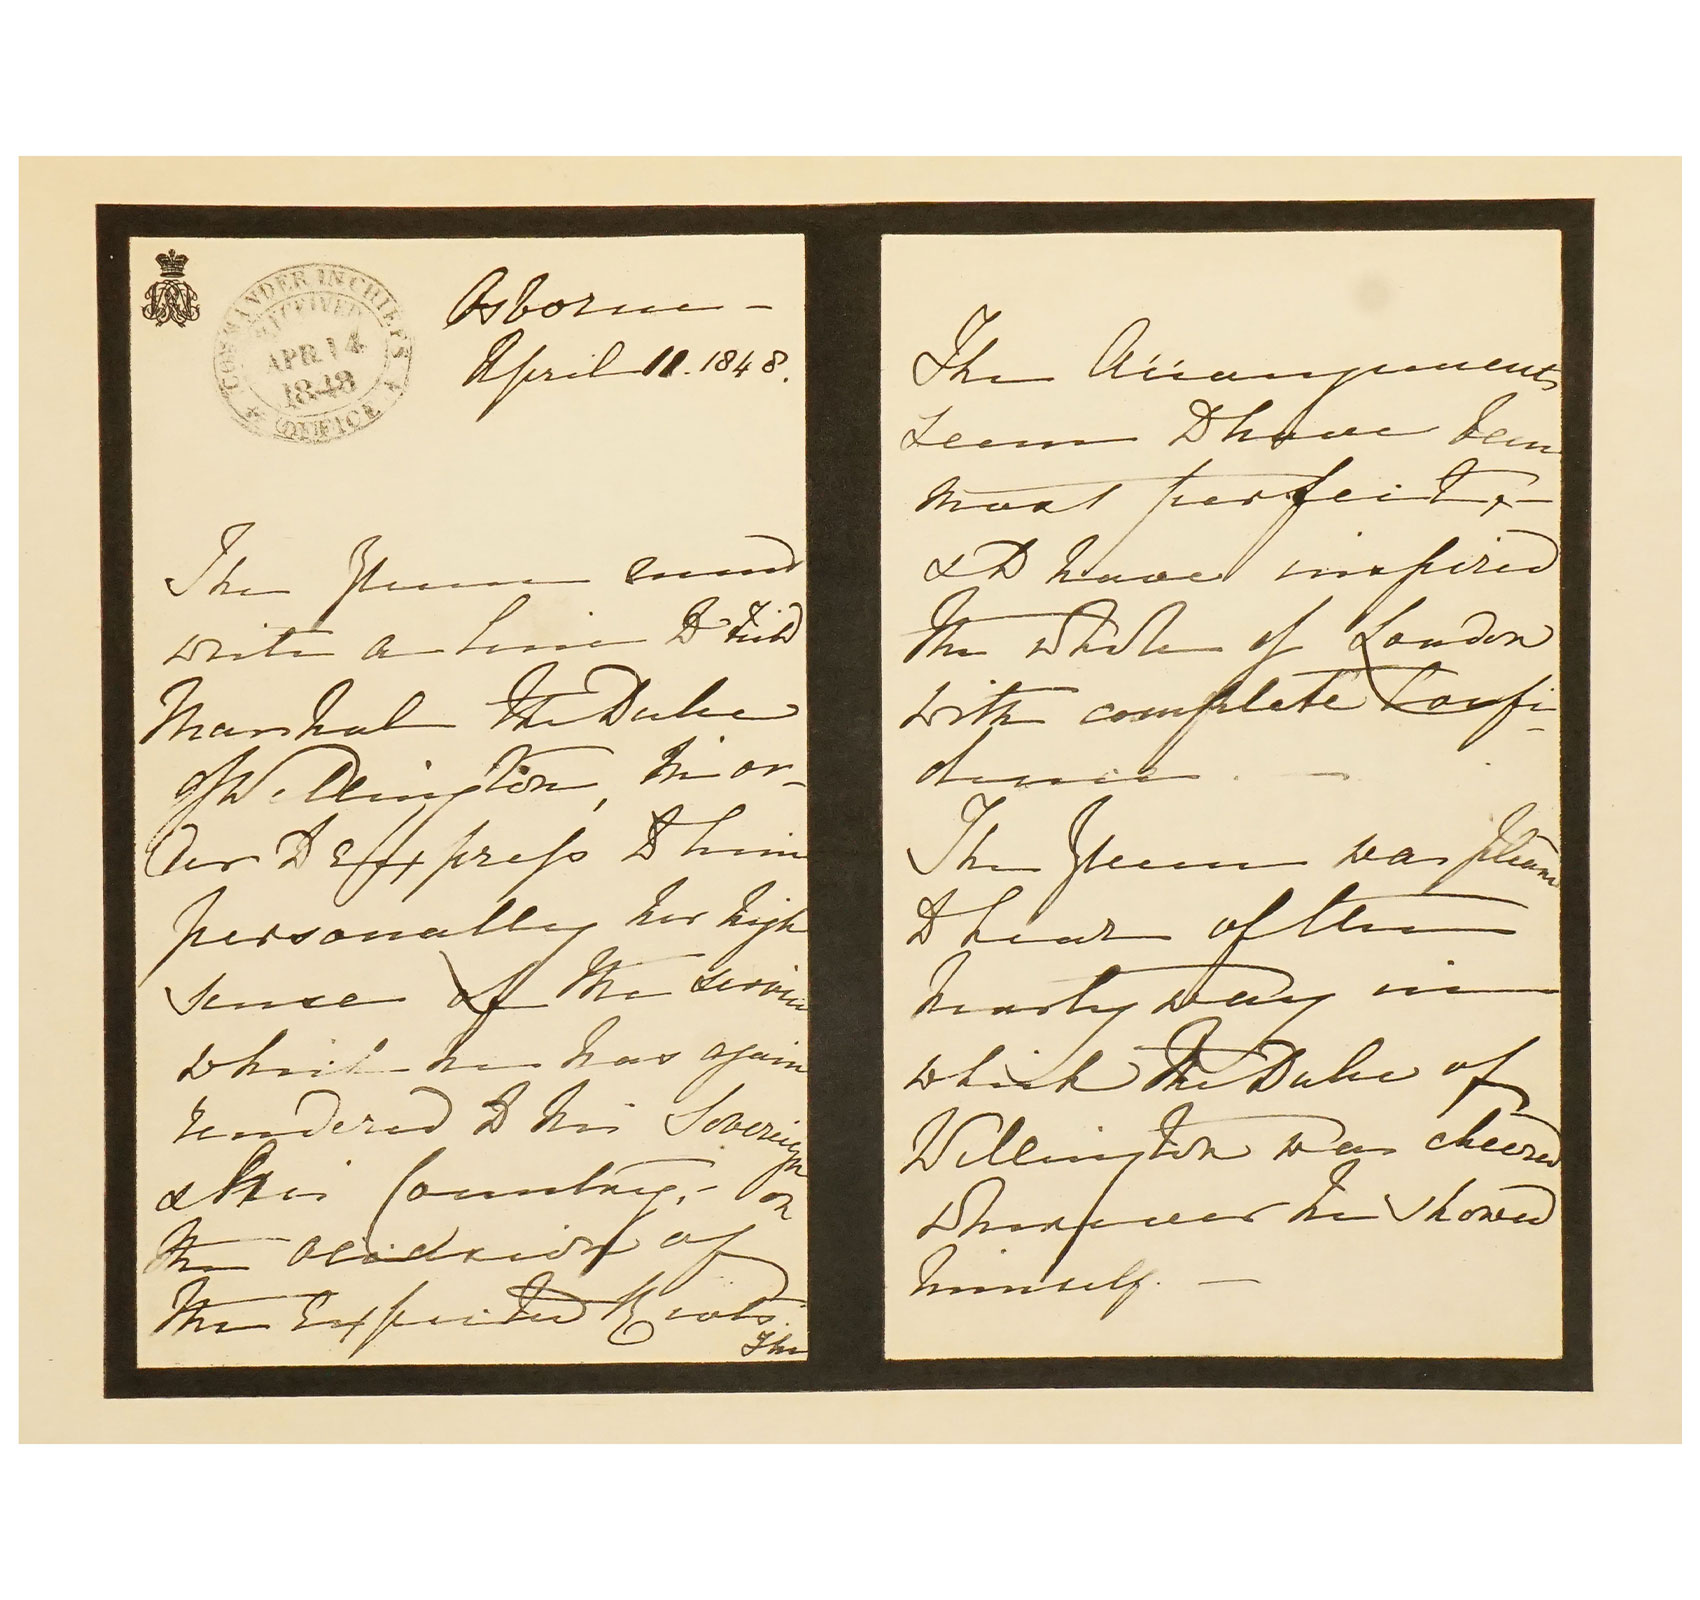 COMMANDER IN CHIEF'S
RECEIVED
APR. 14
1848
OFFICE
Osborne –
April 11. 1848.
The Queen must
write a line to Field
Marshal the Duke
of Wellington, in or-
der to express to him
personally her high
sense of the service
which he has again
rendered to his Sovereign
& this Country, – on
the occasion of
the expected Riots.
The
The Arrangements
seem to have been
most perfect, –
& to have inspired
the whole of London
with complete Confi-
dence. –
The Queen was pleased
to hear of the
hearty way in
which the Duke of
Wellington was cheered
wherever he showed
himself. –